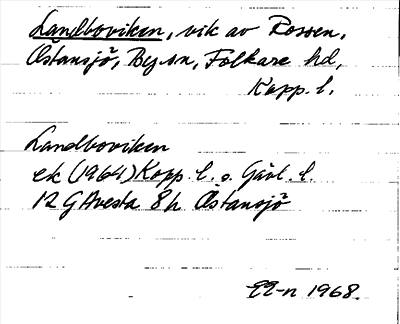 Landboviken, vik av Rossen,
Östansjö, By sn, Folkare hd,
Kopp. l.
Landboviken
ek (1964) Kopp. l. o. Gävl. l.
12 G Avesta 8h Östansjö
1968.